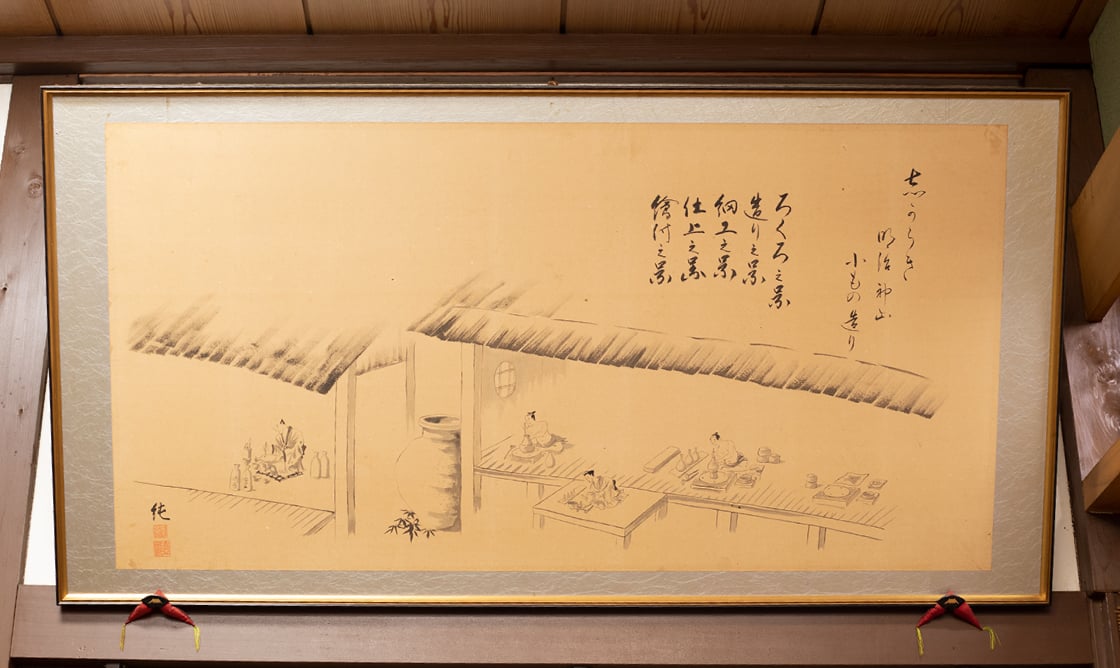 志からき
明治神山
小もの造り
ろくろ之景
造り之景
細工之景
仕上之景
繪付之景
純